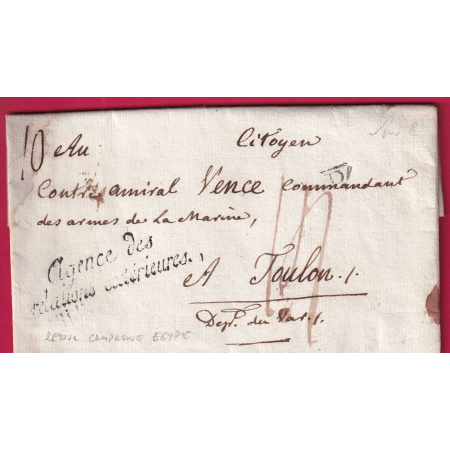 10 Au Citoyen
Contre amiral Vence Commandant
des armes de la Marine,
Agence des
relations extérieures.
A Toulon.
Dept. du Var.
RETOUR CAMPAGNE EGYPTE